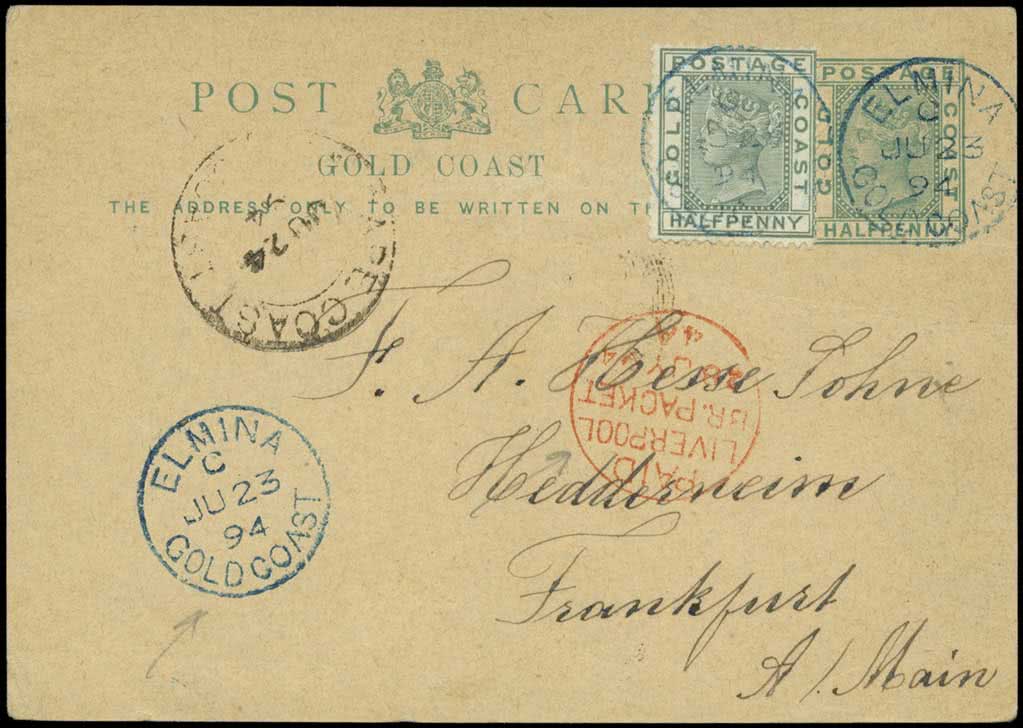 POST CAR
GOLD COAST
THE ADDRESS ONLY TO BE WRITTEN ON
POSTAGE
GOLD
COAST
HALFPENNY
POSTAGE
GOLD
COAST
HALFPENNY
ELMINA
C
JU 23
94
GOLD COAST
COAST
JU 24
F. A. Hesse Söhne
Hedderneim
Frankfurt
A / Main
PAID
LIVERPOOL
BR. PACKET
JY 94
4A
ELMINA
C
JU 23
94
GOLD COAST